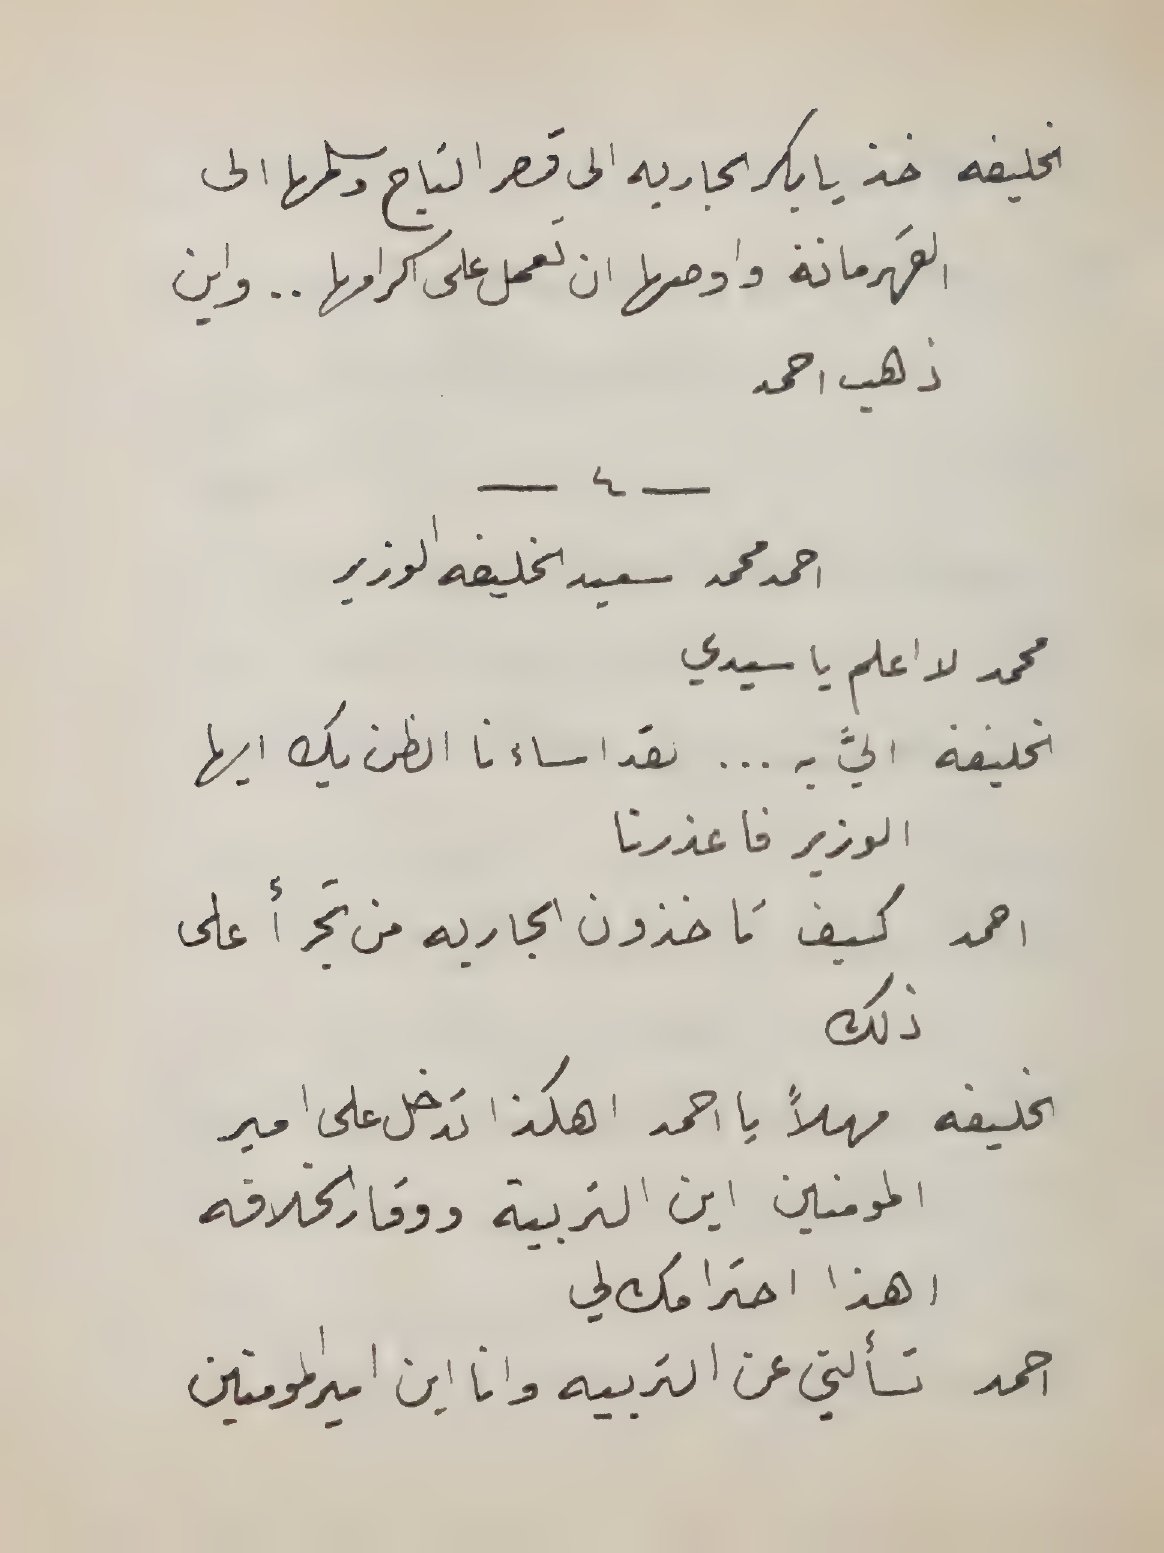 الخليفه خذ يا بكر الجاريه الى قصر التاج وسلمها الى
القهرمانة واوصها ان تعمل على اكرامها .. واين
ذهب احمد
— ٤ —
احمد محمد سعيد الخليفه الوزير
محمد لا اعلم يا سيدي
الخليفة اليَّ به ... لقد اساءنا الظن بك ايها
الوزير فاعذرنا
احمد كيف تاخذون الجاريه من تجرأ على
ذلك
الخليفه مهلاً يا احمد اهكذا تدخل على امير
المومنين اين التربية ووقار الخلافه
اهذا احترامك لي
احمد تسألني عن التربيه وانا ابن امير المومنين